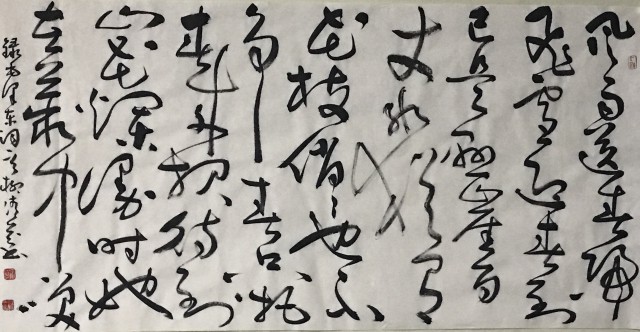 风雨送春归
飞雪迎春到
已是悬崖百
丈冰犹有
花枝俏俏也不
争春只把
春来报待到
山花烂漫时她
在丛中笑
录毛泽东词咏梅